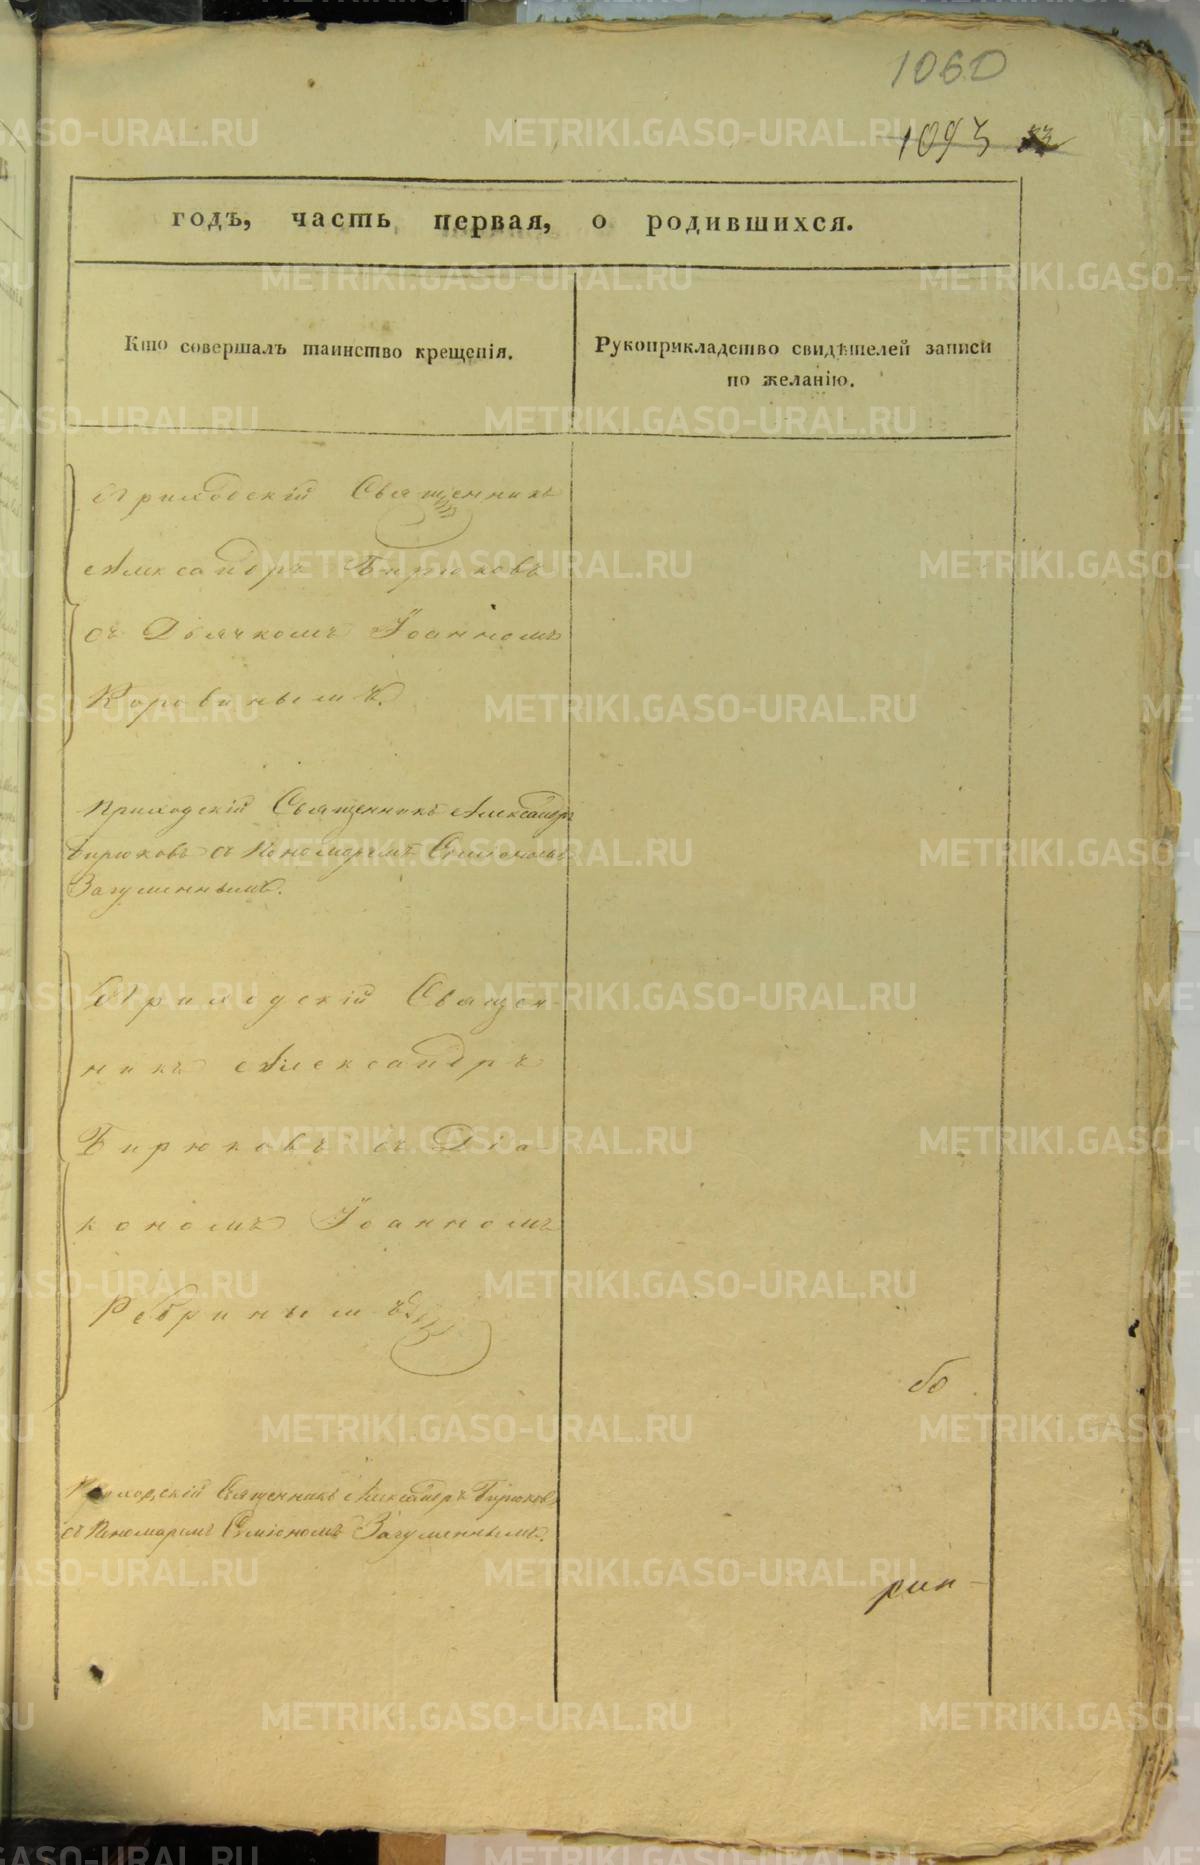 1060
1093
годъ, часть первая, о родившихся.
Кто совершалъ таинство крещенія.
Рукоприкладство свидѣтелей записи
по желанію.
Приходскій Священникъ
Александръ Бирюковъ
съ Дьячкомъ Іоанномъ
Коровинымъ.
Приходскій Священникъ Александръ
Бирюковъ съ Пономаремъ Симіономъ
Загуменнымъ.
Приходскій Священ-
никъ Александръ
Бирюковъ съ Діа-
кономъ Іоанномъ
Ребринымъ
Приходскій Священникъ Александръ Бирюковъ
съ Пономаремъ Симіономъ Загуменнымъ.
METRIKI.GASO-URAL.RU